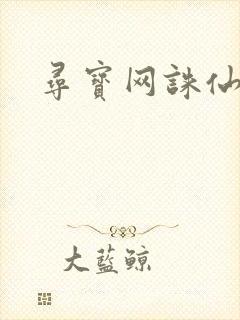 尋寶网誅仙
大藍鲸